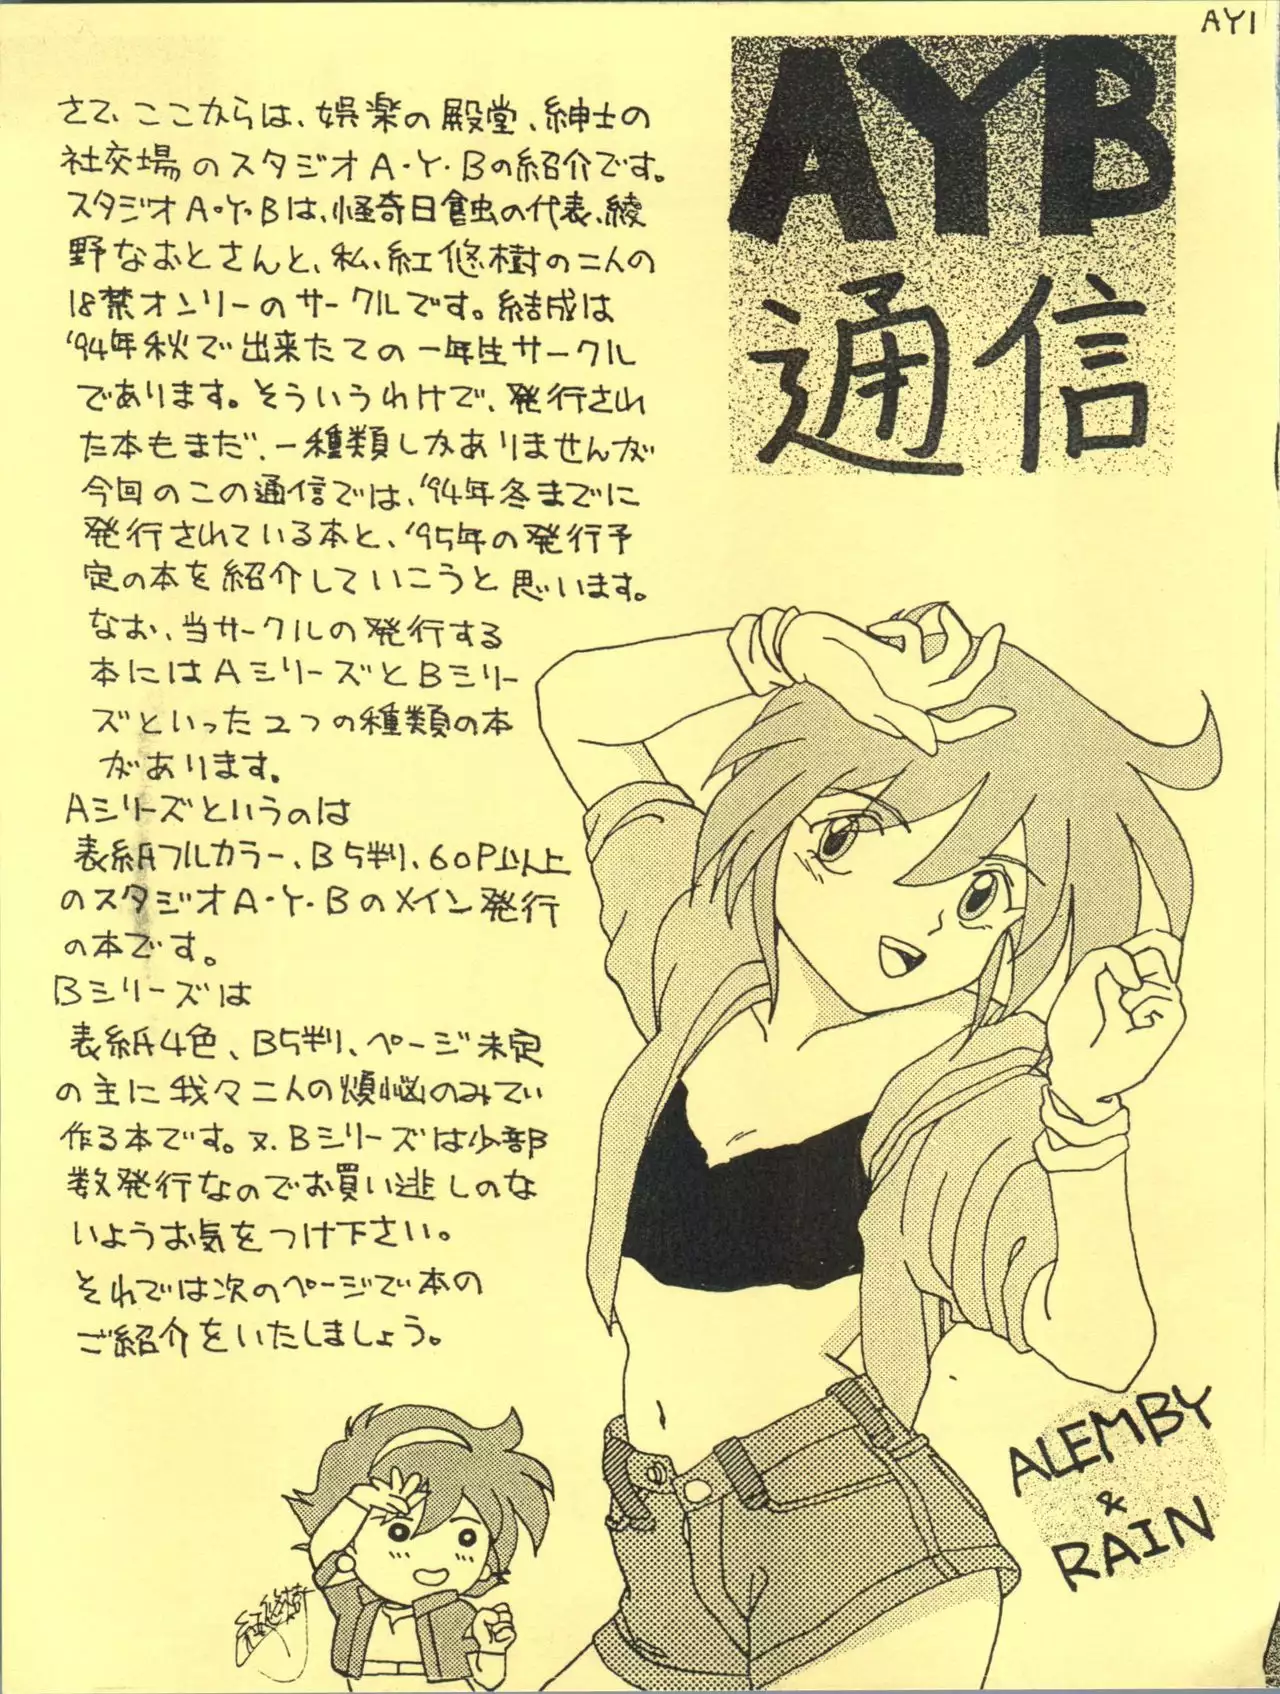 AY1
AYB
通信
さて、ここからは、娯楽の殿堂、紳士の
社交場のスタジオA・Y・Bの紹介です。
スタジオA・Y・Bは、怪奇日蝕の代表、綾
野なおとさんと、私、紅悠樹の二人の
18禁オンリーのサークルです。結成は
'94年秋で出来たての一年生サークル
であります。そういうわけで、発行され
た本もまだ、一種類しかありませんが
今回のこの通信では、'94年冬までに
発行されている本と、'95年の発行予
定の本を紹介していこうと思います。
なお、当サークルの発行する
本にはAシリーズとBシリー
ズといった2つの種類の本
があります。
Aシリーズというのは
表紙フルカラー、B5判、60P以上
のスタジオA・Y・Bのメイン発行
の本です。
Bシリーズは
表紙4色、B5判、ページ未定
の主に我々二人の煩悩のみてい
作る本です。又、Bシリーズは少部
数発行なのでお買い逃しのな
いようお気をつけ下さい。
それでは次のページで本の
ご紹介をいたしましょう。
ALEMBY
&
RAIN
紅悠樹